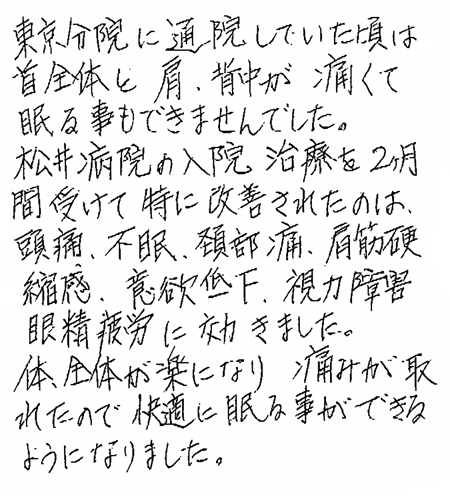 東京分院に通院していた頃は
首全体と肩、背中が痛くて
眠る事もできませんでした。
松井病院の入院治療を2ヶ月
間受けて特に改善されたのは、
頭痛、不眠、頚部痛、肩筋硬
縮感、意欲低下、視力障害
眼精疲労に効きました。
体、全体が楽になり 痛みが取
れたので快適に眠る事ができる
ようになりました。